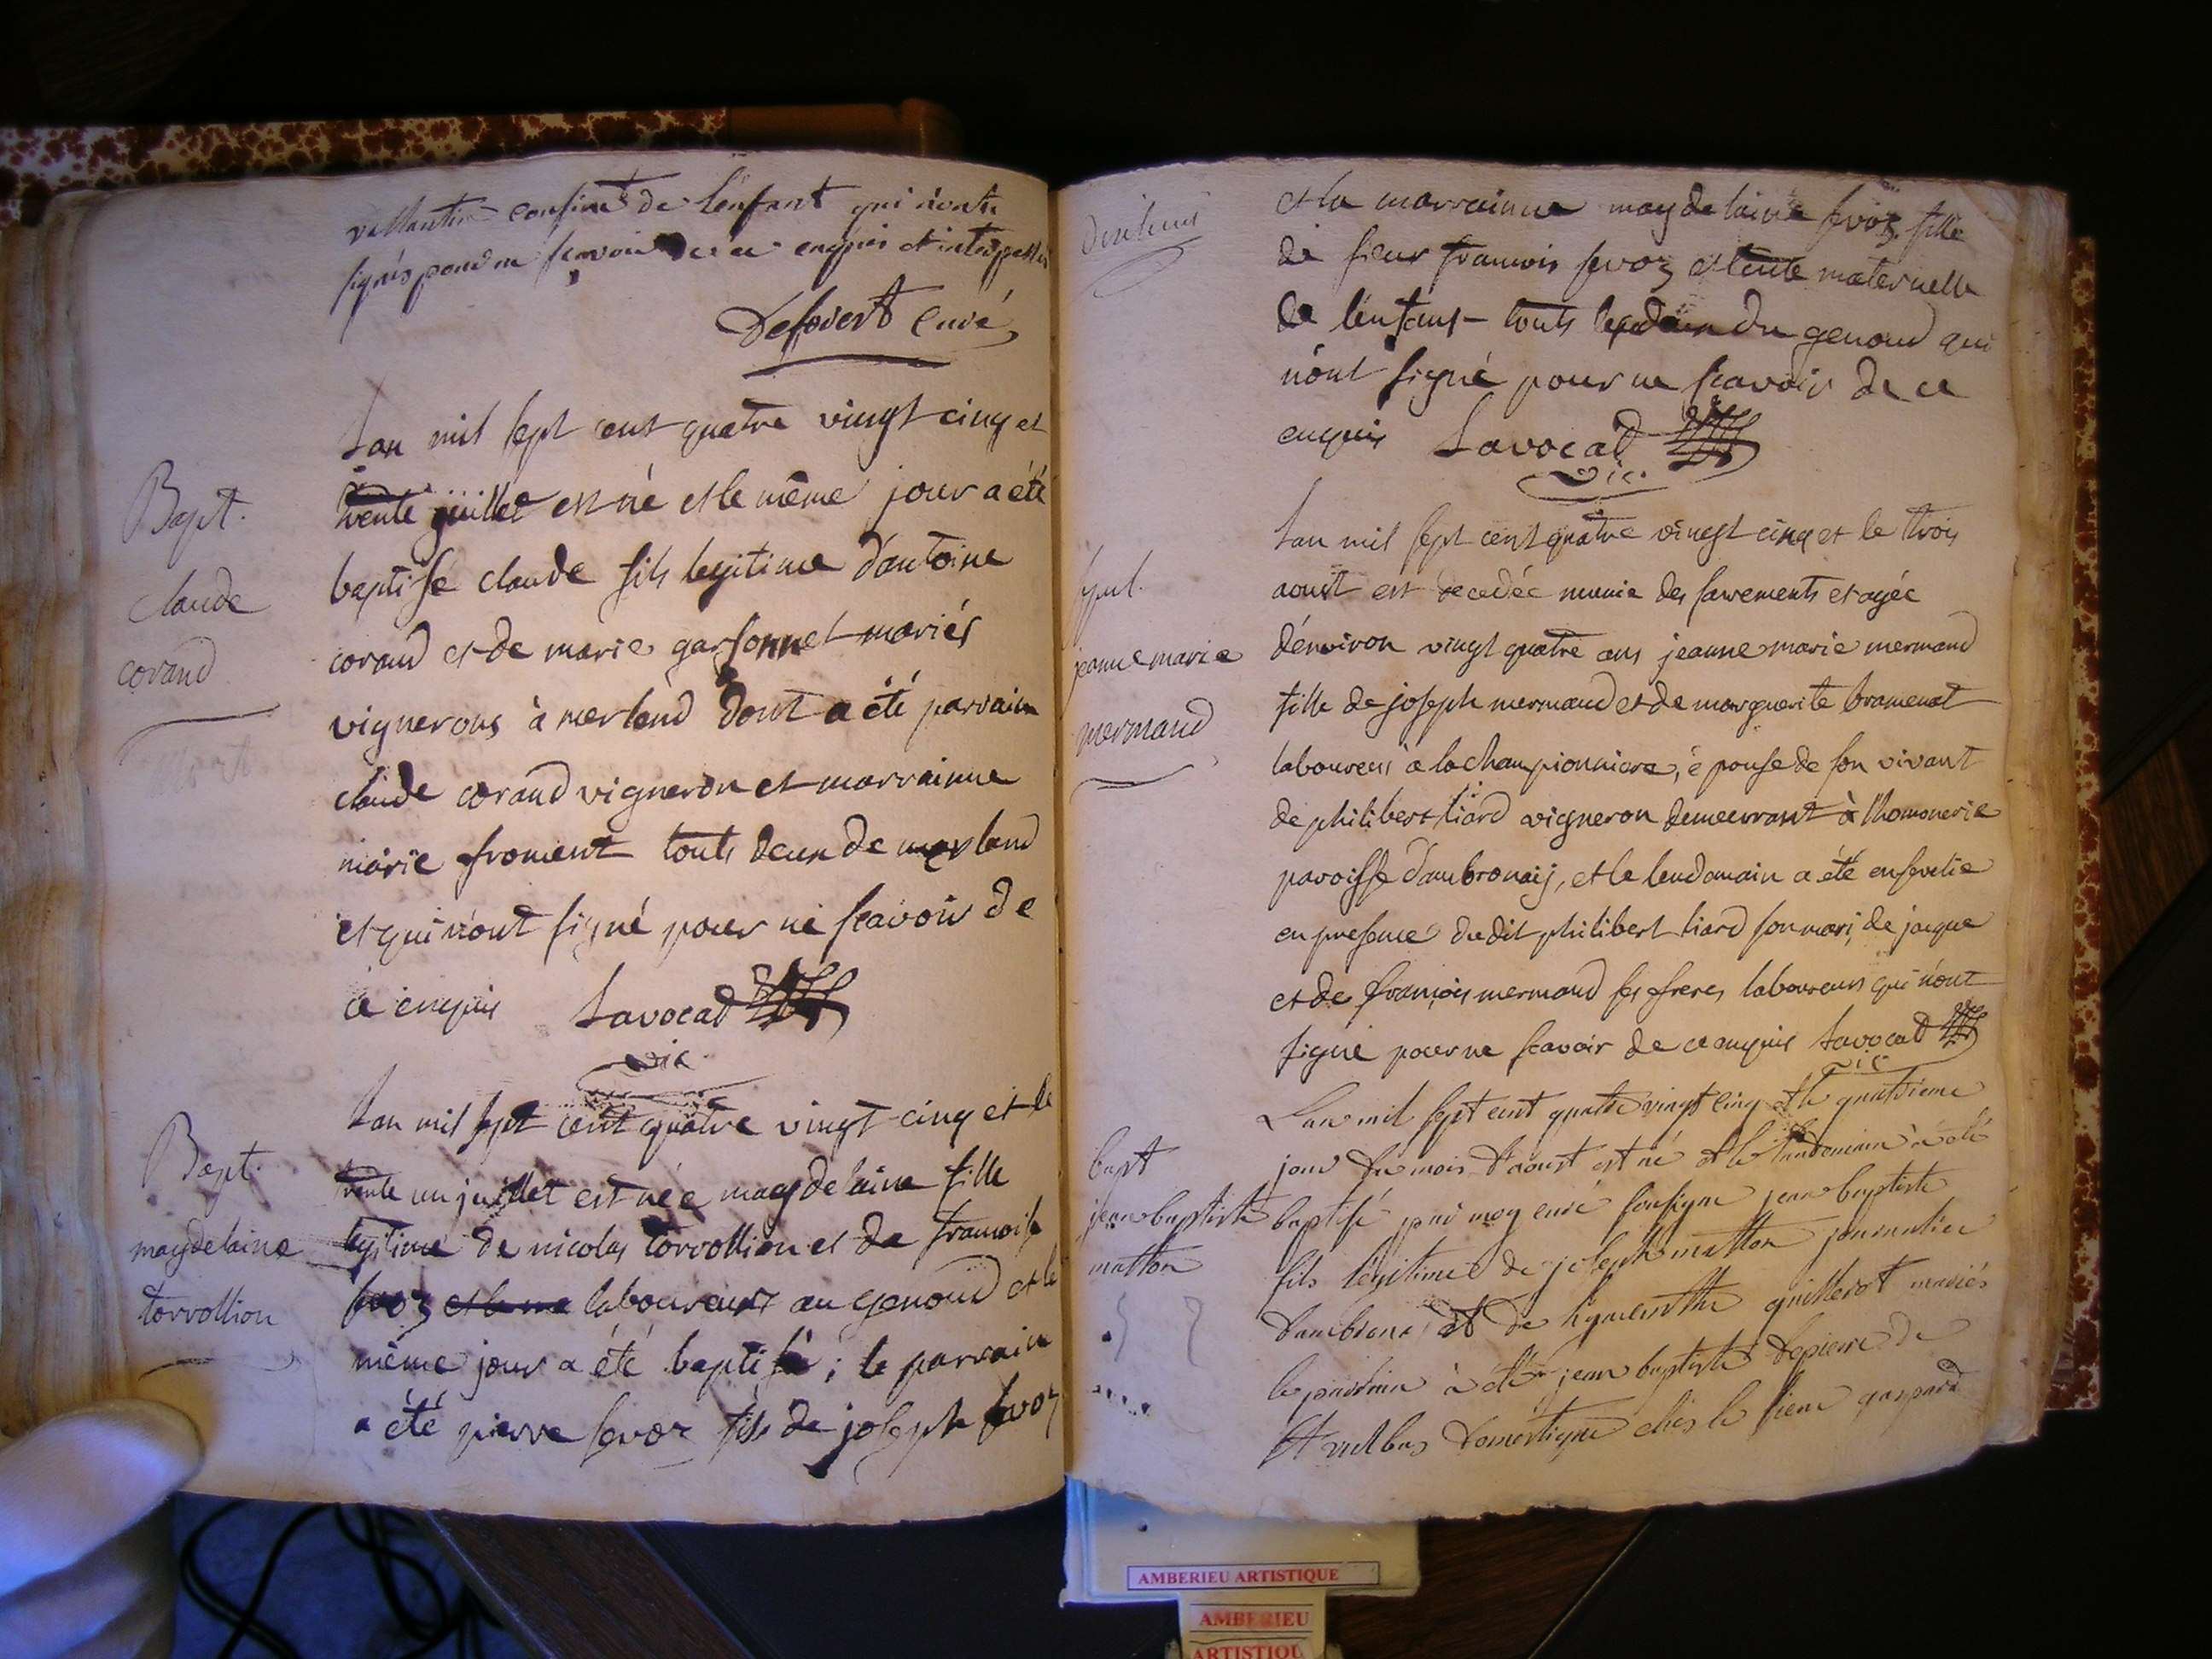 vallantin cousins de l'enfant qui n'ont
signés pour ne scavoir de ce enquis et interpellés
Desvert curé
Lan mil sept cent quatre vingt cinq et
Bapt.
claude
corand
trente juillet est né et le même jour a été
baptisé claude fils legitime d'antoine
corand et de marie garsonnet mariés
vignerons à merland dont a été parrain
claude corand vigneron et marrainne
marie froment touts deux de merland
et qui n'ont signé pour ne scavoir de
ce enquis Lavocat
vic.
Lan mil sept cent quatre vingt cinq et le
Bapt.
magdelaine
torvollion
trente un juillet est née magdelaine fille
legitime de nicolas torvollion et de francoise
sevoz et le me laboureurs au genoud et le
même jour a été baptisé; le parrain
a été pierre sevoz fils de joseph sevoz
et la marrainne magdelaine sevoz fille
de sieur francois sevoz et tente maternelle
de l'enfant touts du genoud qui
n'ont signé pour ne scavoir de ce
enquis Lavocat
vic.
Lan mil sept cent quatre vingt cinq et le trois
sepul.
jeanne marie
mermand
aoust est decedée munie des sacrements et agée
d'environ vingt quatre ans jeanne marie mermand
fille de joseph mermand et de marguerite bramenat
laboureurs a la championniere, épouse de son vivant
de philibert liard vigneron demeurrant à l'homonerie
paroisse d'ambronay, et le lendemain a été ensevelie
en presence dudit philibert liard son mari, de jacque
et de françois mermand ses freres laboureurs qui n'ont
signé pour ne scavoir de ce enquis Lavocat
vic
L'an mil sept cent quatre vingt cinq et le quatrieme
bapt
jean baptiste
matton
jour du mois d'aoust est né et le lendemain à été
baptisé par moy curé soussigne jean baptiste
fils légitime de joseph matton journalier
et de guillerot mariés
le parrain à été jean baptiste depierre de
St domestique chés le sieur gaspard
AMBERIEU ARTISTIQUE
AMBERIEU
ARTISTIQU